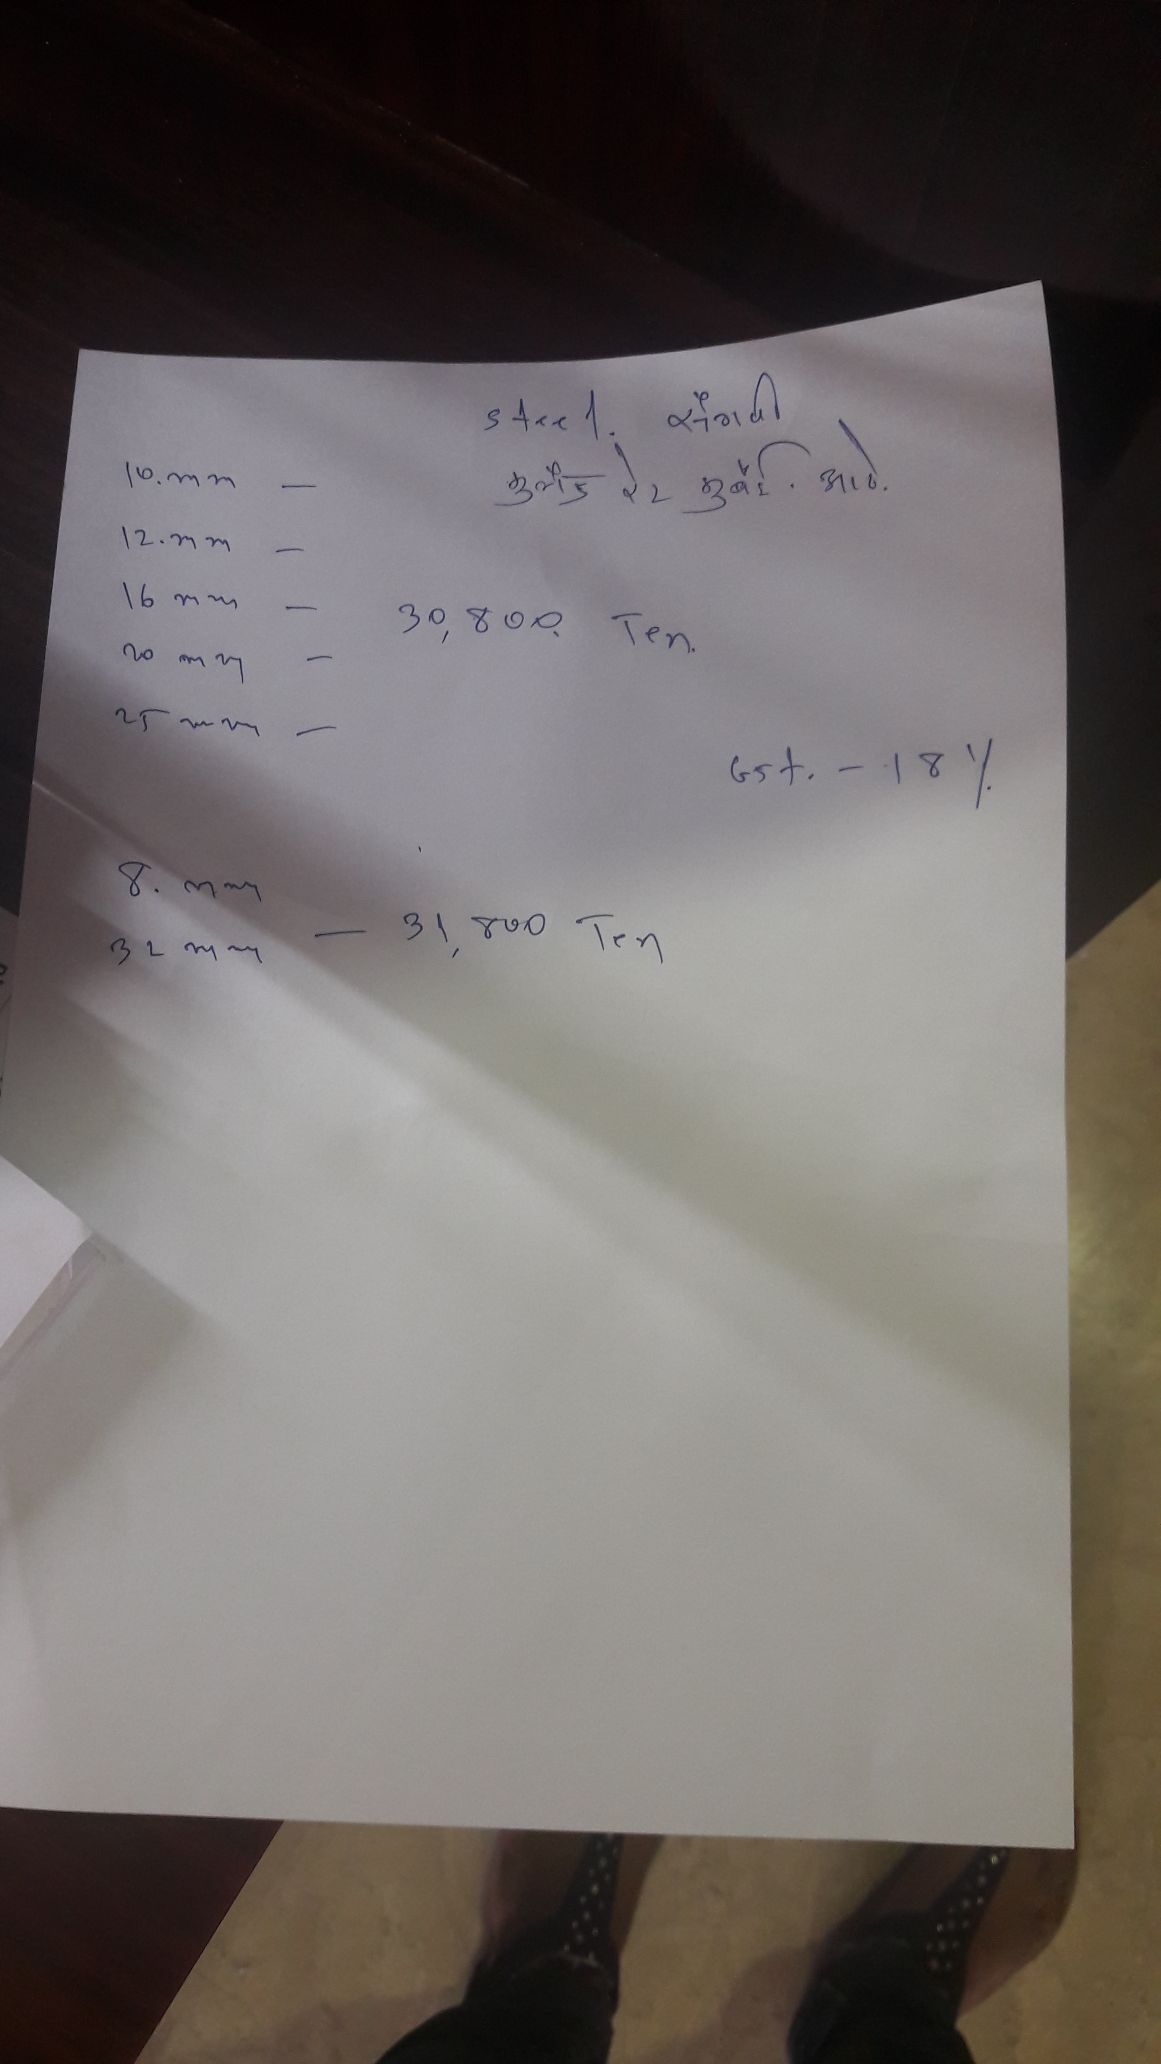 steel. સંઘવી
10.mm —
12.mm —
16 mm — 30,800 Ten.
20 mm —
25 mm —
Gst. - 18 %
8. mm
32 mm — 31,800 Ten